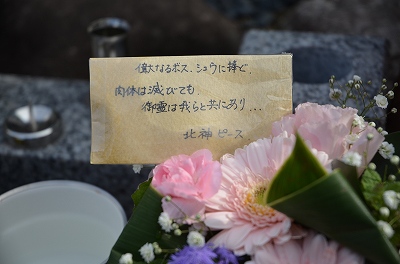 偉大なるボス、シュウに捧ぐ
肉体は滅びても
御霊は我らと共にあり...
北神ピース